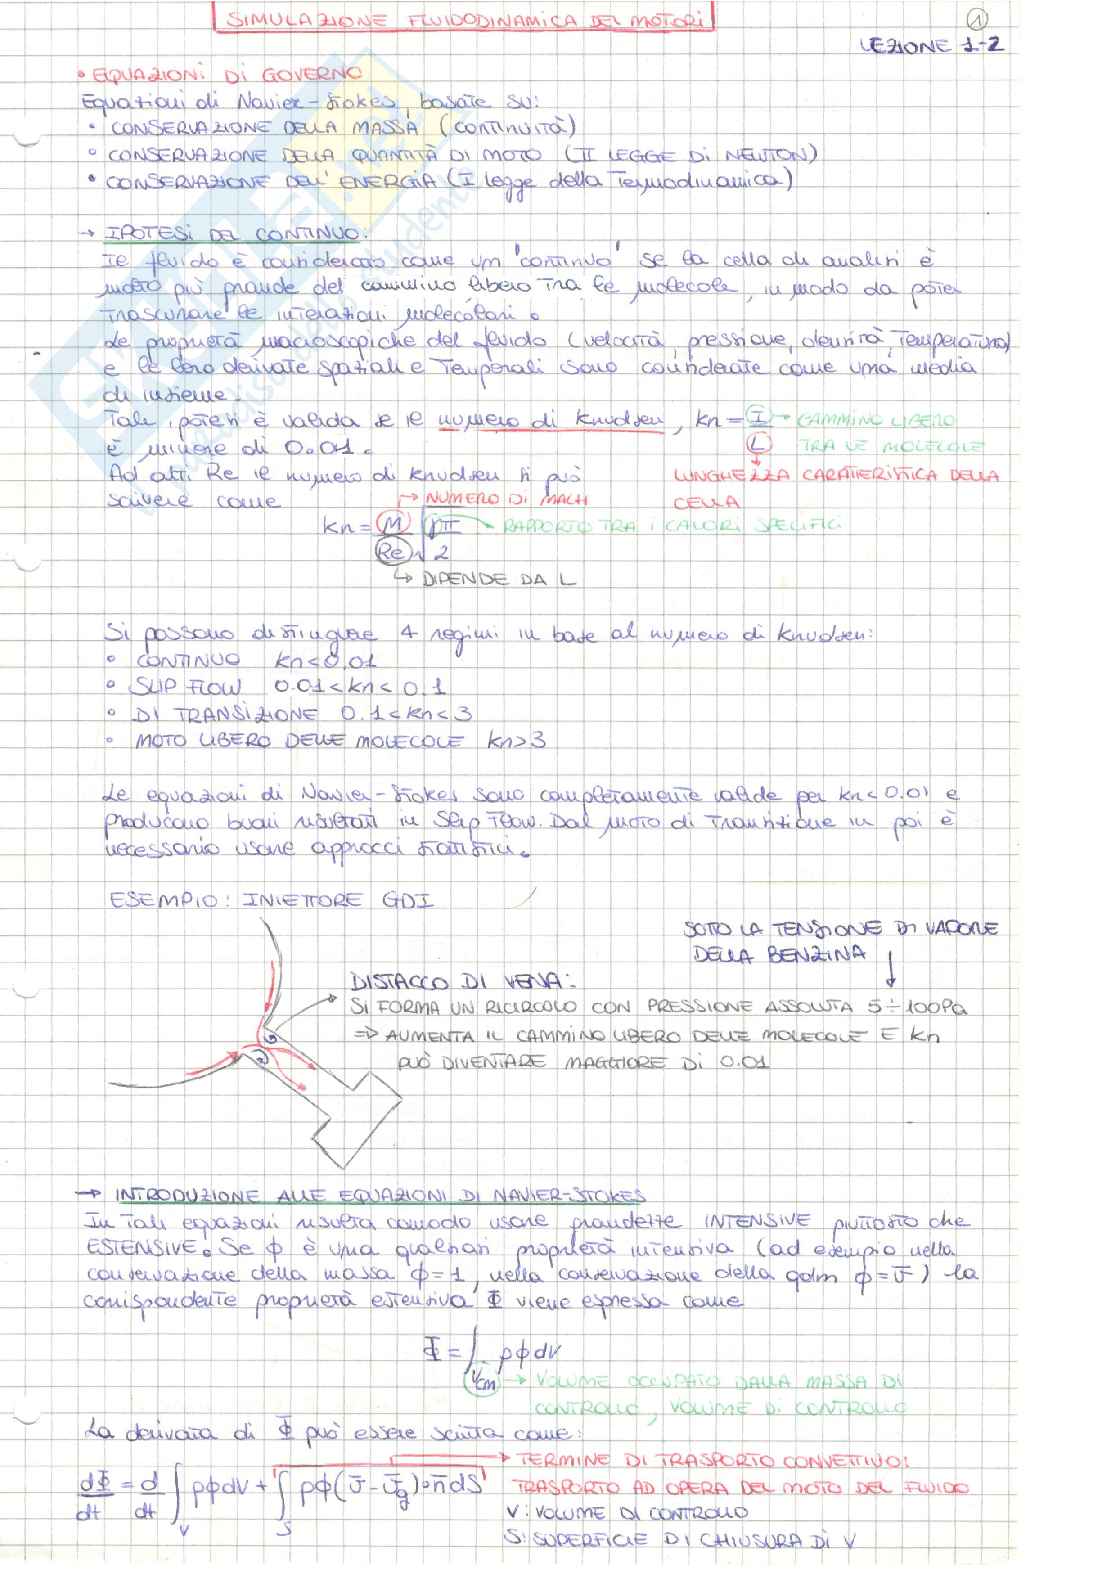 SIMULAZIONE FLUIDODINAMICA DEI MOTORI
1
LEZIONE 1-2
• EQUAZIONI DI GOVERNO
Equazioni di Navier-Stokes, basate su:
• CONSERVAZIONE DELLA MASSA (CONTINUITÀ)
• CONSERVAZIONE DELLA QUANTITÀ DI MOTO (II LEGGE DI NEWTON)
• CONSERVAZIONE DELL'ENERGIA (I legge della Termodinamica)
→ IPOTESI DEL CONTINUO:
Il fluido è considerato come un "continuo" se la cella di analisi è
molto più grande del cammino libero tra le molecole, in modo da poter
trascurare le interazioni molecolari.
Le proprietà macroscopiche del fluido (velocità, pressione, densità, temperatura)
e le loro derivate spaziali e temporali sono considerate come una media
di insieme.
Tale ipotesi è valida se il numero di Knudsen, kn = I → CAMMINO LIBERO
è minore di 0.01. L TRA LE MOLECOLE
Ad alti Re il numero di Knudsen si può LUNGHEZZA CARATTERISTICA DELLA
scrivere come → NUMERO DI MACH CELLA
kn = M/Re √(γπ/2) → RAPPORTO TRA I CALORI SPECIFICI
↳ DIPENDE DA L
Si possono distinguere 4 regimi in base al numero di Knudsen:
• CONTINUO kn<0.01
• SLIP FLOW 0.01<kn<0.1
• DI TRANSIZIONE 0.1<kn<3
• MOTO LIBERO DELLE MOLECOLE kn>3
Le equazioni di Navier-Stokes sono completamente valide per kn<0.01 e
producono buoni risultati in Slip Flow. Dal moto di transizione in poi è
necessario usare approcci statistici.
ESEMPIO: INIETTORE GDI
SOTTO LA TENSIONE DI VAPORE
DELLA BENZINA
DISTACCO DI VENA:
SI FORMA UN RICIRCOLO CON PRESSIONE ASSOLUTA 5÷100Pa
⇒ AUMENTA IL CAMMINO LIBERO DELLE MOLECOLE E kn
PUÒ DIVENTARE MAGGIORE DI 0.01
→ INTRODUZIONE ALLE EQUAZIONI DI NAVIER-STOKES
In tali equazioni risulta comodo usare grandezze INTENSIVE piuttosto che
ESTENSIVE. Se ϕ è una qualsiasi proprietà intensiva (ad esempio nella
conservazione della massa ϕ=1, nella conservazione della qdm ϕ=v̄) la
corrispondente proprietà estensiva Φ viene espressa come
Φ = ∫ ρϕdV
Vcm → VOLUME OCCUPATO DALLA MASSA DI
CONTROLLO, VOLUME DI CONTROLLO
La derivata di Φ può essere scritta come:
→ TERMINE DI TRASPORTO CONVETTIVO:
dΦ/dt = d/dt ∫V ρϕdV + ∫S ρϕ(v̄-v̄g)∘n̄dS TRASPORTO AD OPERA DEL MOTO DEL FLUIDO
V: VOLUME DI CONTROLLO
S: SUPERFICIE DI CHIUSURA DI V